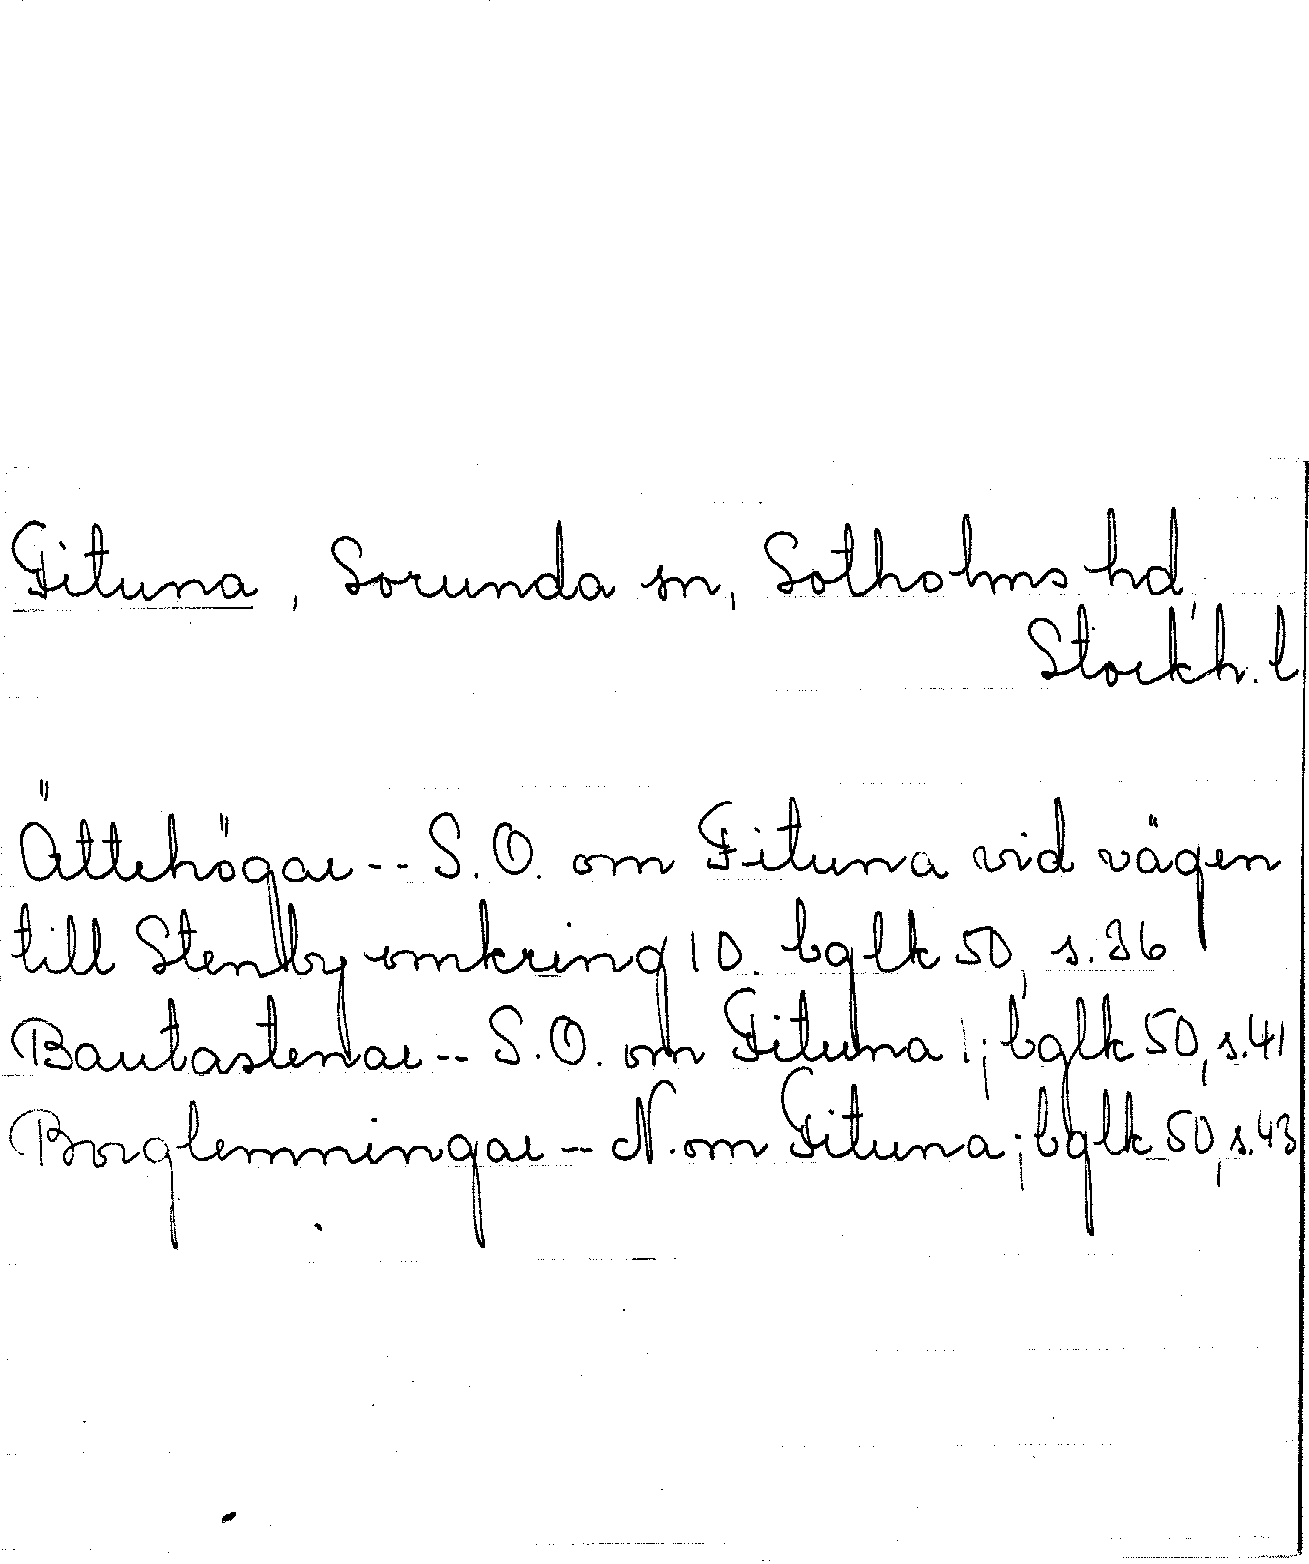 Fituna, Sorunda sn, Sotholms hd,
Stockh. l
Ättehögar -- S.O. om Fituna vid vägen
till Stenby omkring 10. bglk 50, s. 36
Bautastenar -- S.O. om Fituna 1; bglk 50, s. 41
Borglemningar -- N. om Fituna; bglk 50, s. 43